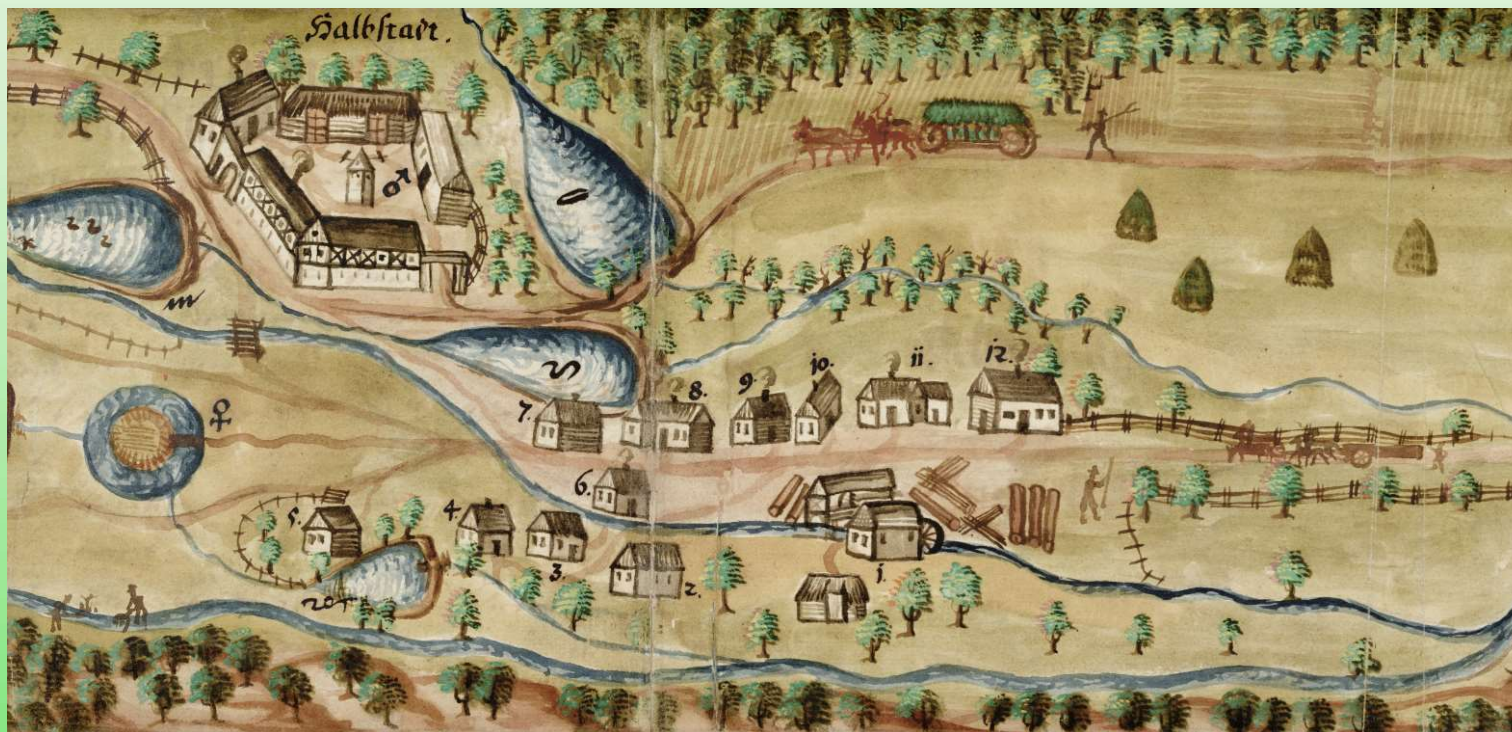 Halbstatt.
♂
♀
7.
8.
9.
10.
11.
12.
6.
5.
4.
3.
2.
1.